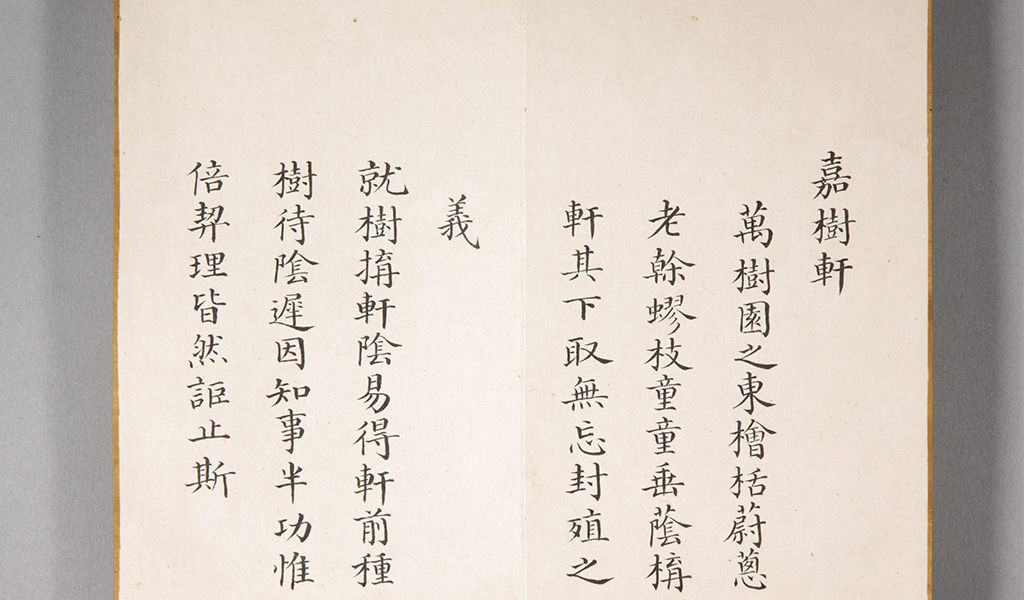 嘉樹軒
萬樹園之東檜栝蔚蔥
老榦蟉枝童童垂蔭構
軒其下取無忘封殖之
義
就樹搆軒陰易得軒前種
樹待陰遲因知事半功惟
倍栔理皆然詎止斯